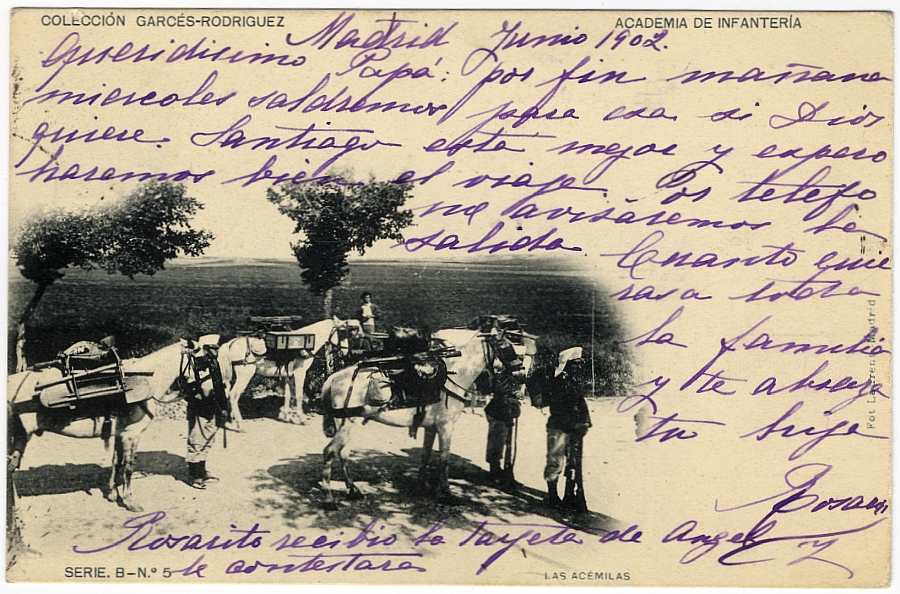 COLECCIÓN GARCÉS-RODRIGUEZ
ACADEMIA DE INFANTERÍA
Madrid Junio 1902.
Queridisimo Papá: por fin mañana
miercoles saldremos para esa si Dios
quiere. Santiago está mejor y espero
haramos bien el viaje. Por telefo
no avisáremos la
salida. Cuanto quie
ras a toda
la familia
y te abraza
tu hija
Rosario
Rosarito recibio la tarjeta de Angel y
le contestara
SERIE. B-N.º 5
LAS ACÉMILAS
Fot Madrid